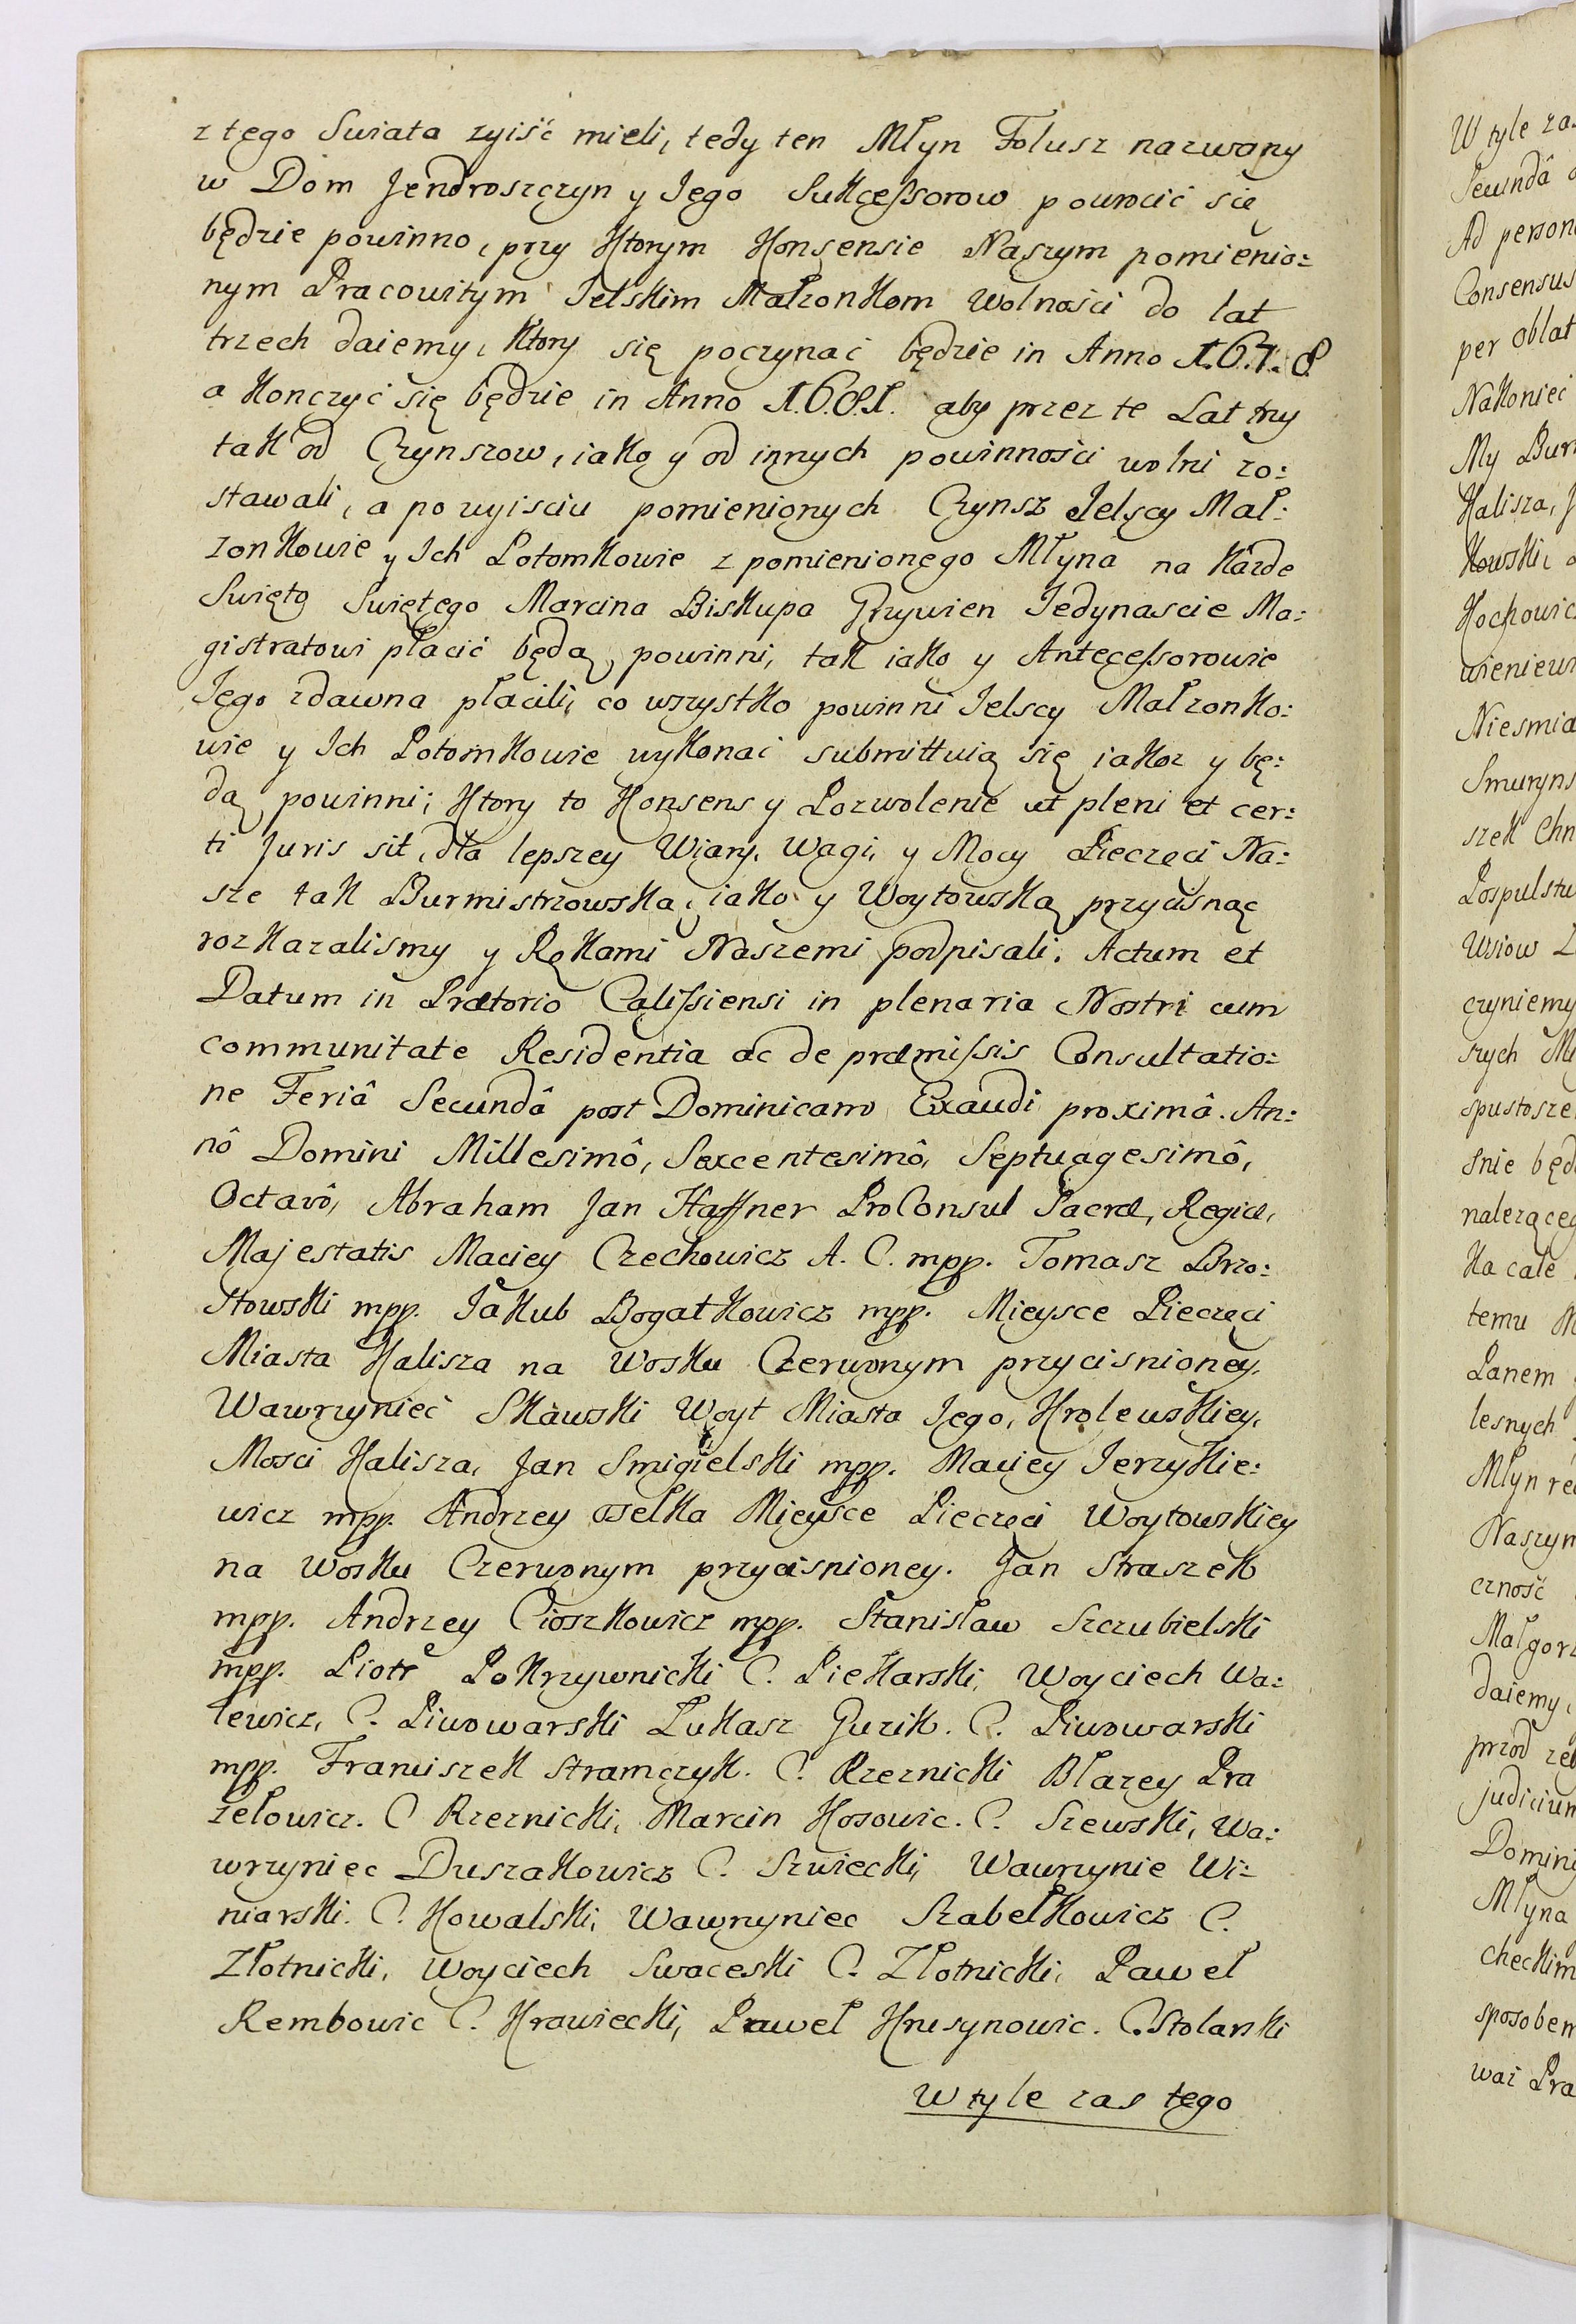 z tego Swiata zyiść mieli, tedy ten Młyn Folusz nazwany
w Dom Jendroszczyn y Jego Sukcessorow powrocić się
będzie powinno, przy Ktorym Konsensie Naszym pomienio:
nym Pracowitym Jelskim Małzonkom Wolności do lat
trzech daiemy, Ktory się poczynać będzie in Anno 1.6.7.8.
a Konczyć się będzie in Anno 1.6.8.1. aby przez te Lat trzy
tak od Czynszow, iako y od innych powinności wolni zo:
stawali, a po wyisciu pomienionych Czynsz Jelscy Mał:
zonkowie y Ich Potomkowie z pomienionego Młyna na Kazde
Swięto Swiętego Marcina Biskupa Grzywien Jedynascie Ma:
gistratowi płacić będą powinni, tak iako y Antecessorowie
Jego zdawna płacili, co wszystko powinni Jelscy Małzonko:
wie y Ich Potomkowie wykonać submittuią się iakoz y bę:
dą powinni; Ktory to Konsens y Pozwolenie ut pleni et cer:
ti Juris sit, dla lepszey Wiary, Wagi, y Mocy Pieczęci Na:
sze tak Burmistrzowską, iako y Woytowską przycisnąć
rozkazalismy y Rękami Naszemi podpisali. Actum et
Datum in Prætorio Calissiensi in plenaria Nostri cum
communitate Residentia ac de præmissis Consultatio:
ne Feriâ Secundâ post Dominicam Exaudi proximâ. An:
nô Domini Millesimô, Sexcentesimô, Septuagesimô,
Octavô, Abraham Jan Haffner ProConsul Sacræ, Regiæ,
Majestatis Maciey Czechowicz A. C. mpp. Tomasz Brzo:
stowski mpp. Jakub Bogatkowicz mpp. Mieysce Pieczęci
Miasta Kalisza na Wosku Czerwonym przycisnioney.
Wawrzyniec Skawski Woyt Miasta Jego, Krolewskiey,
Mosci Kalisza, Jan Smigielski mpp. Maciey Jerzykie:
wicz mpp. Andrzey osełka Mieysce Pieczęci Woytowskiey
na Wosku Czerwonym przycisnioney. Jan Straszek
mpp. Andrzey Cioszkowicz mpp. Stanisław Szczubielski
mpp. Piotr Pokrzywnicki C. Piekarski, Woyciech Wa:
lewicz, C. Piwowarski Łukasz Guzik. C. Piwowarski
mpp. Franciszek Stramczyk. C. Rzeznicki Błazey Pra
zełowicz. C Rzeznicki, Marcin Kosowic. C. Szewski, Wa:
wrzyniec Duszakowicz C. Szwiecki, Wawrzynie Wi:
niarski. C. Kowalski, Wawrzyniec Szabełkowicz C.
Złotnicki, Woyciech Swaceski C. Złotnicki, Paweł
Rembowic C. Krawiecki, Paweł Krusynowic. C. Stolarski
W tyle zas tego